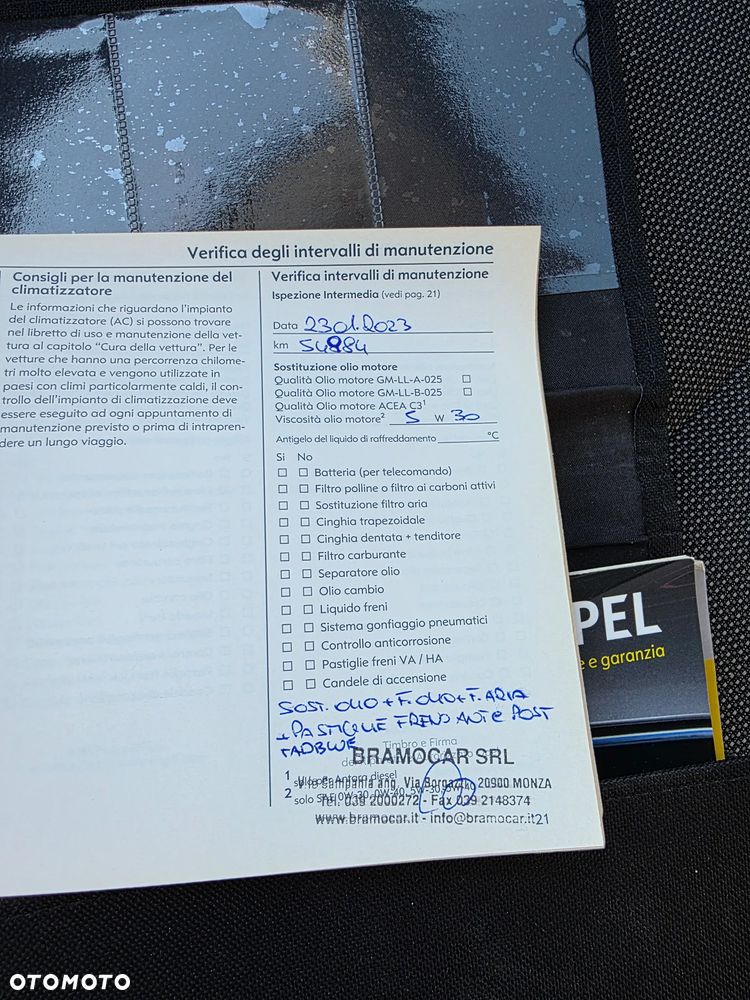 Verifica degli intervalli di manutenzione
Consigli per la manutenzione del
climatizzatore
Le informazioni che riguardano l'impianto
del climatizzatore (AC) si possono trovare
nel libretto di uso e manutenzione della vet-
tura al capitolo "Cura della vettura". Per le
vetture che hanno una percorrenza chilome-
tri molto elevata e vengono utilizzate in
paesi con climi particolarmente caldi, il con-
trollo dell'impianto di climatizzazione deve
essere eseguito ad ogni appuntamento di
manutenzione previsto o prima di intrapren-
dere un lungo viaggio.
Verifica intervalli di manutenzione
Ispezione Intermedia (vedi pag. 21)
Data 23 01.2023
km 54884
Sostituzione olio motore
Qualità Olio motore GM-LL-A-025 □
Qualità Olio motore GM-LL-B-025 □
Qualità Olio motore ACEA C3¹
Viscosità olio motore² 5 W 30
Antigelo del liquido di raffreddamento °C
Si No
□ □ Batteria (per telecomando)
□ □ Filtro polline o filtro ai carboni attivi
□ □ Sostituzione filtro aria
□ □ Cinghia trapezoidale
□ □ Cinghia dentata + tenditore
□ □ Filtro carburante
□ □ Separatore olio
□ □ Olio cambio
□ □ Liquido freni
□ □ Sistema gonfiaggio pneumatici
□ □ Controllo anticorrosione
□ □ Pastiglie freni VA / HA
□ □ Candele di accensione
SOST. OLIO + F. OLIO + F. ARIA
+ PASTIGLIE FRENO ANT e POST
+ ADBLUE
Timbro e Firma
BRAMOCAR SRL
1 solo per Antara diesel
V.le Campania ang. Via 20900 MONZA
2 solo SAE 0W-30, 0W-40, 5W-30, 5W-40
Tel. 039 2000272 - Fax 039 2148374
www.bramocar.it - info@bramocar.it
21
PEL
e e garanzia
OTOMOTO